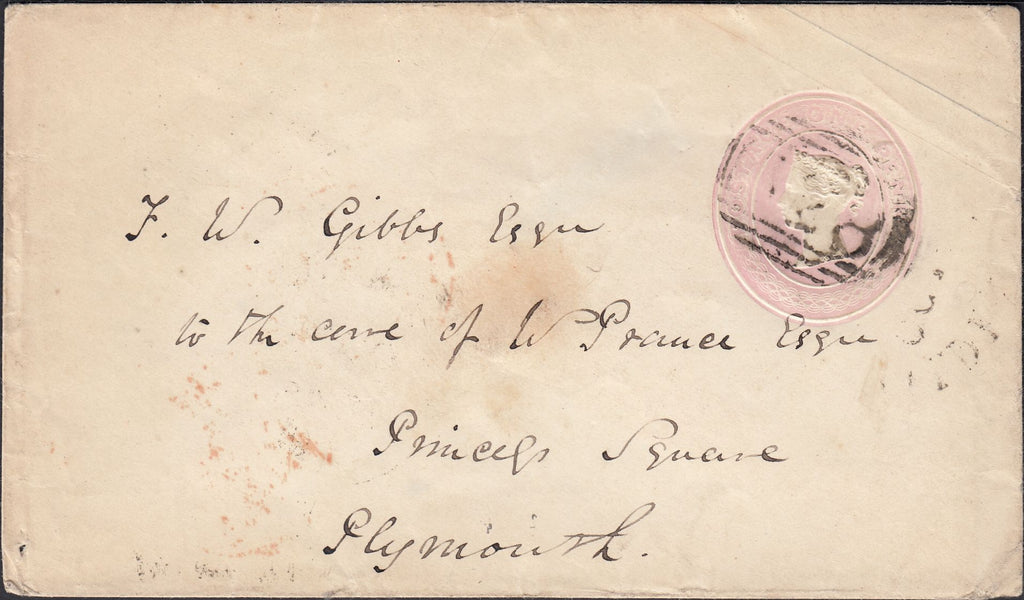 F. W. Gibbs Esqre
to the care of W Prance Esqre
Princess Square
Plymouth.